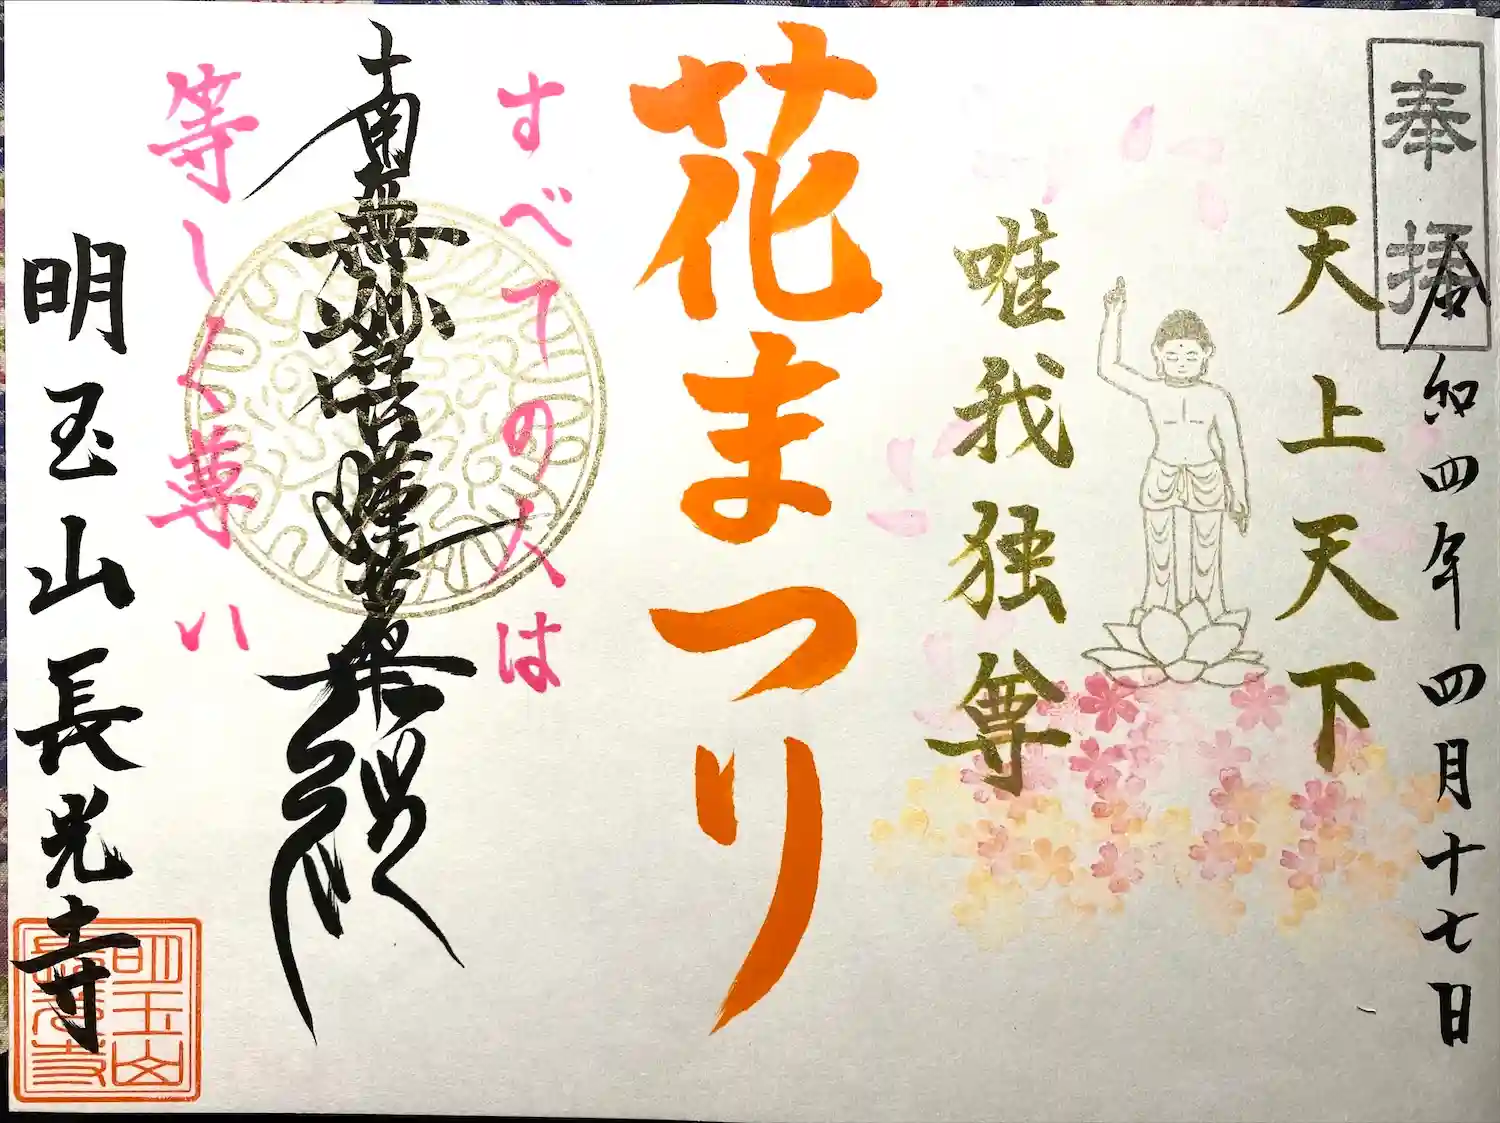 奉拝
令和四年四月十七日
天上天下
唯我独尊
花まつり
すべての人は
南無妙法蓮華経
等しく尊い
明玉山長光寺
明玉山
長光寺